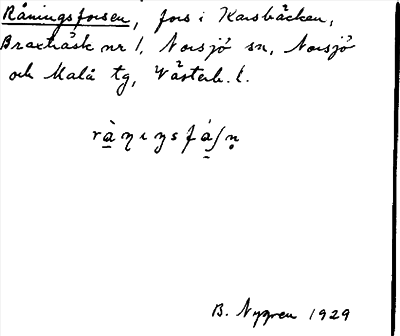 Råningsforsen, fors i Karsbäcken,
Braxträsk nr 1, Norsjö sn, Norsjö
och Malå tg, Västerb. l.
rà̱ŋıŋsfá̱ʃn̥
B. Nygren 1929